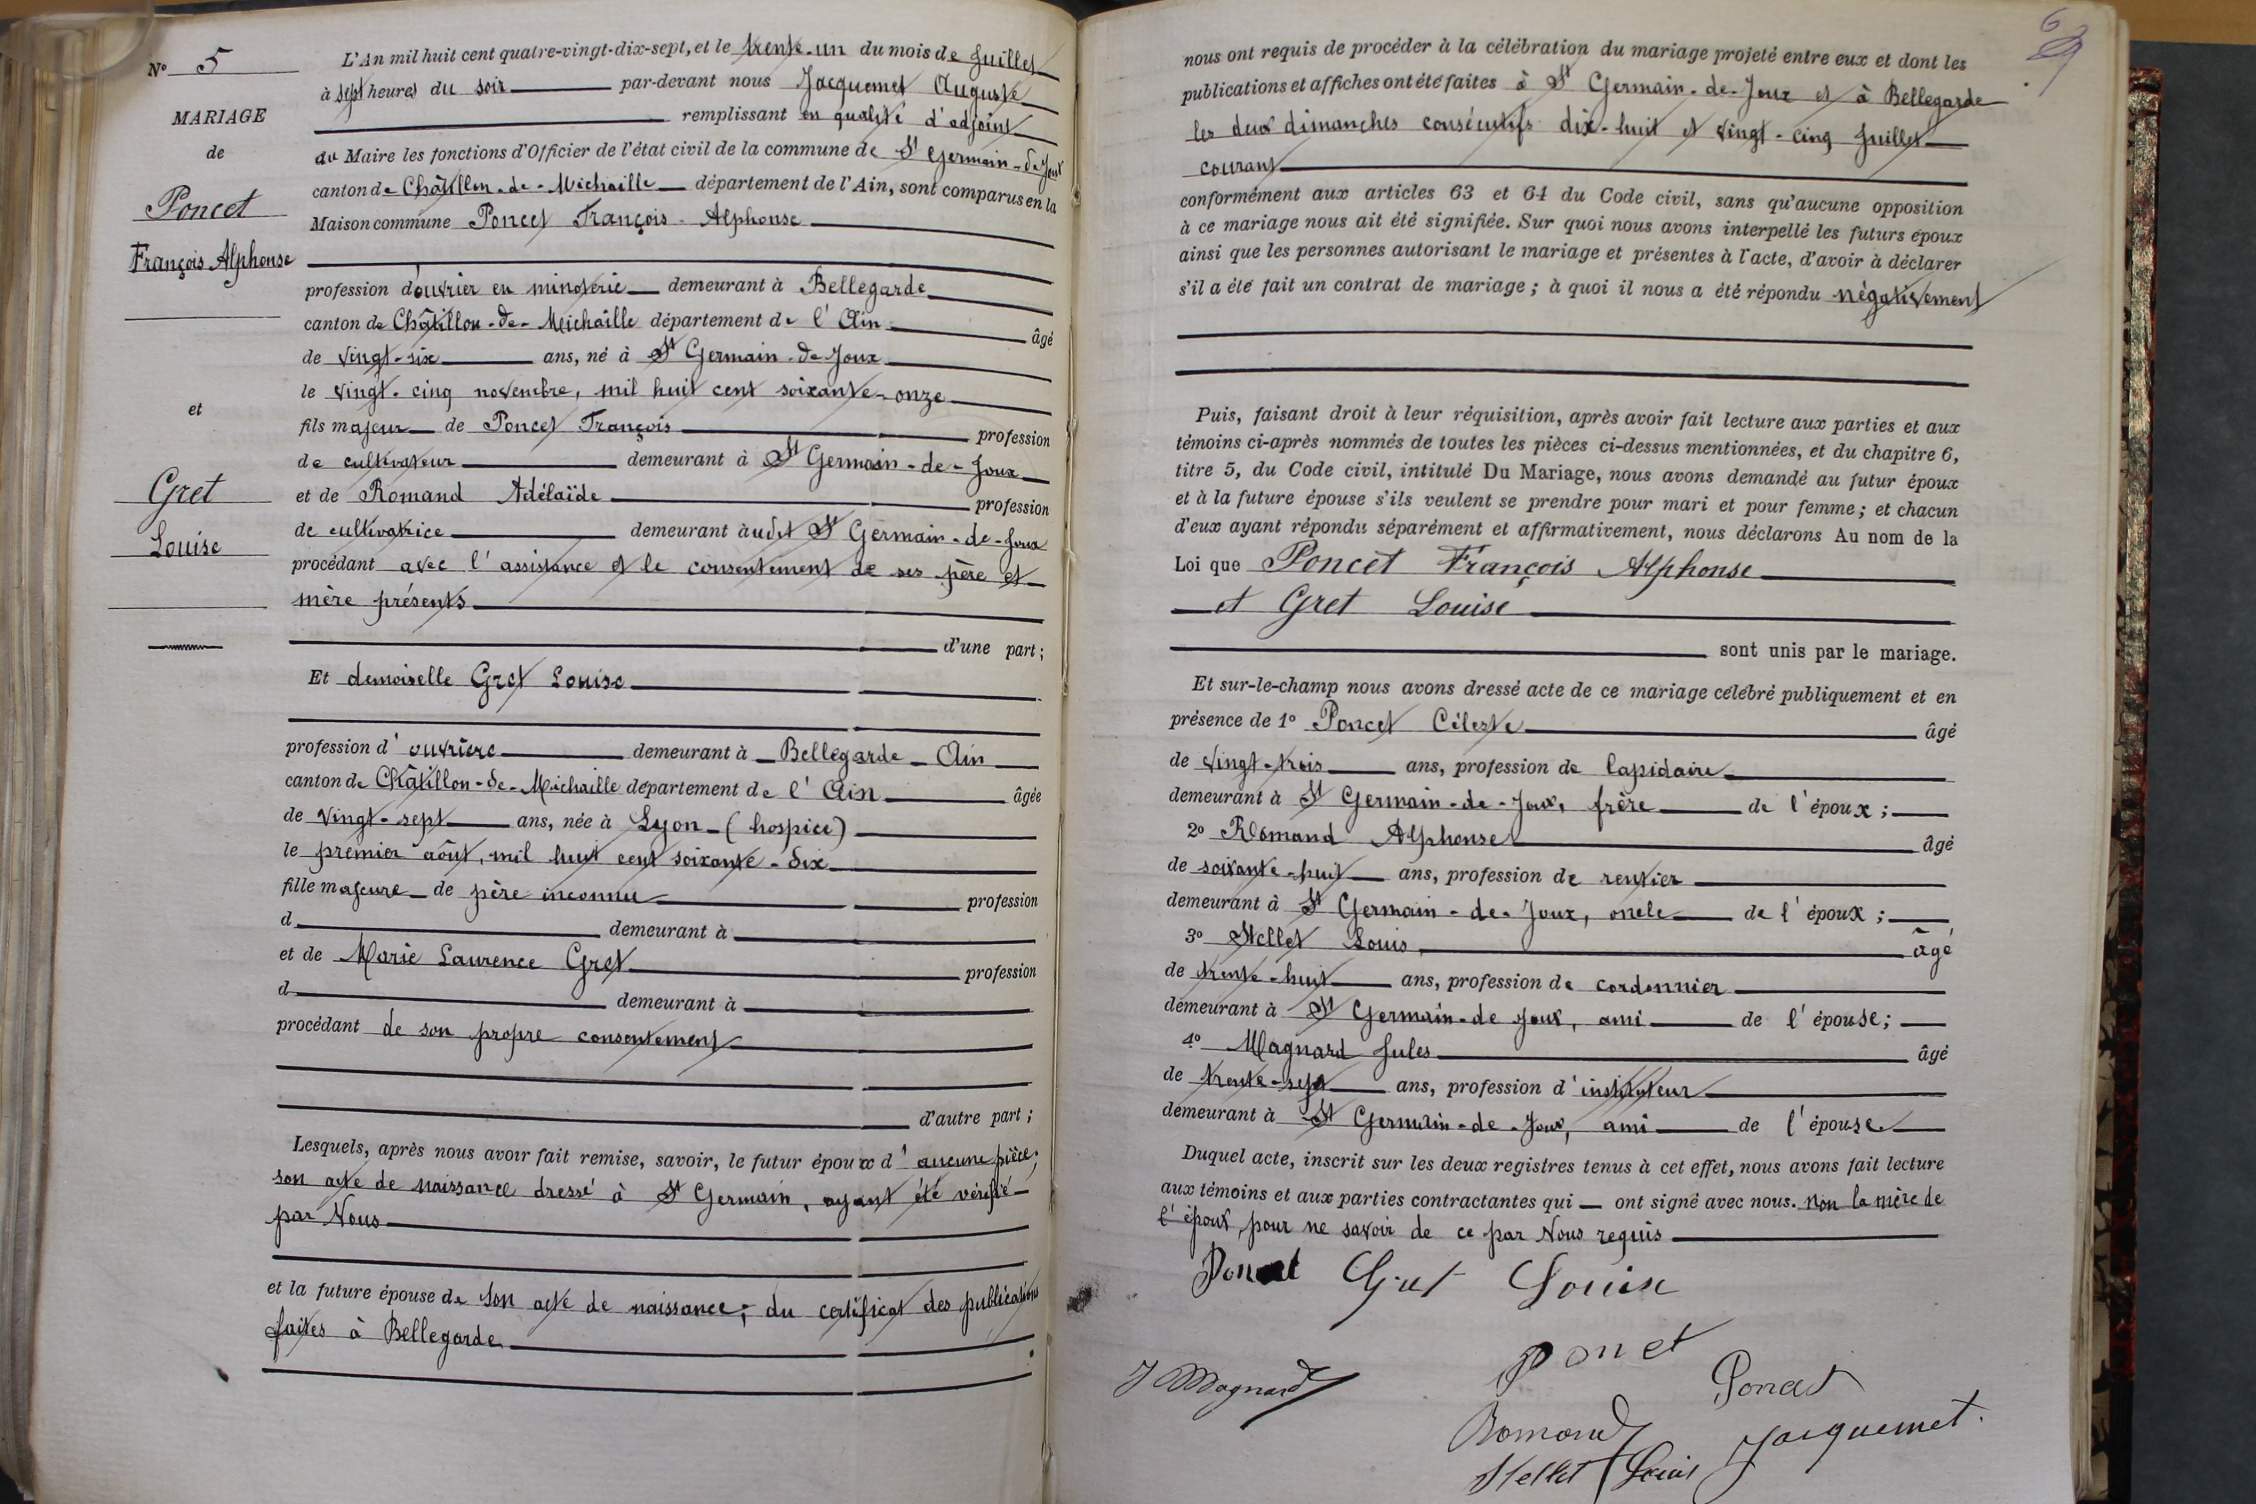 N° 5
MARIAGE
de
Poncet
François Alphonse
et
Gret
Louise
L'An mil huit cent quatre-vingt-dix-sept, et le trente-un du mois de Juillet
à sept heures du soir par-devant nous Jacquemet Auguste
remplissant en qualité d'adjoint
du Maire les fonctions d'Officier de l'état civil de la commune de St Germain-de-Joux
canton de Châtillon-de-Michaille département de l'Ain, sont comparus en la
Maison commune Poncet François-Alphonse
profession d'ouvrier en minoterie demeurant à Bellegarde
canton de Châtillon-de-Michaille département de l'Ain âgé
de vingt-six ans, né à St Germain-de-Joux
le vingt-cinq novembre, mil huit cent soixante-onze
fils majeur de Poncet François profession
de cultivateur demeurant à St Germain-de-Joux
et de Romand Adélaïde profession
de cultivatrice demeurant àudit St Germain-de-Joux
procédant avec l'assistance et le consentement de ses père et
mère présents
d'une part;
Et demoiselle Gret Louise
profession d'ouvrière demeurant à Bellegarde - Ain
canton de Châtillon-de-Michaille département de l'Ain âgée
de vingt-sept ans, née à Lyon - (hospice)
le premier août, mil huit cent soixante-dix
fille majeure de père inconnu profession
d demeurant à
et de Marie Laurence Gret profession
d demeurant à
procédant de son propre consentement
d'autre part;
Lesquels, après nous avoir fait remise, savoir, le futur époux d'aucune pièce,
son acte de naissance dressé à St Germain, ayant été vérifié
par Nous
et la future épouse de son acte de naissance; du certificat des publications
faites à Bellegarde
6
nous ont requis de procéder à la célébration du mariage projeté entre eux et dont les
publications et affiches ont été faites à St Germain-de-Joux et à Bellegarde
les deux dimanches consécutifs dix-huit et vingt-cinq Juillet
courant
conformément aux articles 63 et 64 du Code civil, sans qu'aucune opposition
à ce mariage nous ait été signifiée. Sur quoi nous avons interpellé les futurs époux
ainsi que les personnes autorisant le mariage et présentes à l'acte, d'avoir à déclarer
s'il a été fait un contrat de mariage; à quoi il nous a été répondu négativement
Puis, faisant droit à leur réquisition, après avoir fait lecture aux parties et aux
témoins ci-après nommés de toutes les pièces ci-dessus mentionnées, et du chapitre 6,
titre 5, du Code civil, intitulé Du Mariage, nous avons demandé au futur époux
et à la future épouse s'ils veulent se prendre pour mari et pour femme; et chacun
d'eux ayant répondu séparément et affirmativement, nous déclarons Au nom de la
Loi que Poncet François Alphonse
et Gret Louise
sont unis par le mariage.
Et sur-le-champ nous avons dressé acte de ce mariage célébré publiquement et en
présence de 1° Poncet Céleste âgé
de vingt-trois ans, profession de lapidaire
demeurant à St Germain-de-Joux, frère de l'époux;
2° Romand Alphonse âgé
de soixante-huit ans, profession de rentier
demeurant à St Germain-de-Joux, oncle de l'époux;
3° Stellet Louis âgé
de trente-huit ans, profession de cordonnier
demeurant à St Germain-de Joux, ami de l'épouse;
4° Magnard Jules âgé
de trente-sept ans, profession d'instituteur
demeurant à St Germain-de-Joux, ami de l'épouse
Duquel acte, inscrit sur les deux registres tenus à cet effet, nous avons fait lecture
aux témoins et aux parties contractantes qui ont signé avec nous. non la mère de
l'époux, pour ne savoir de ce par Nous requis
Poncet Gret Louise
Poncet
J Magnard Poncet
Romand Jacquemet.
Stellet Louis